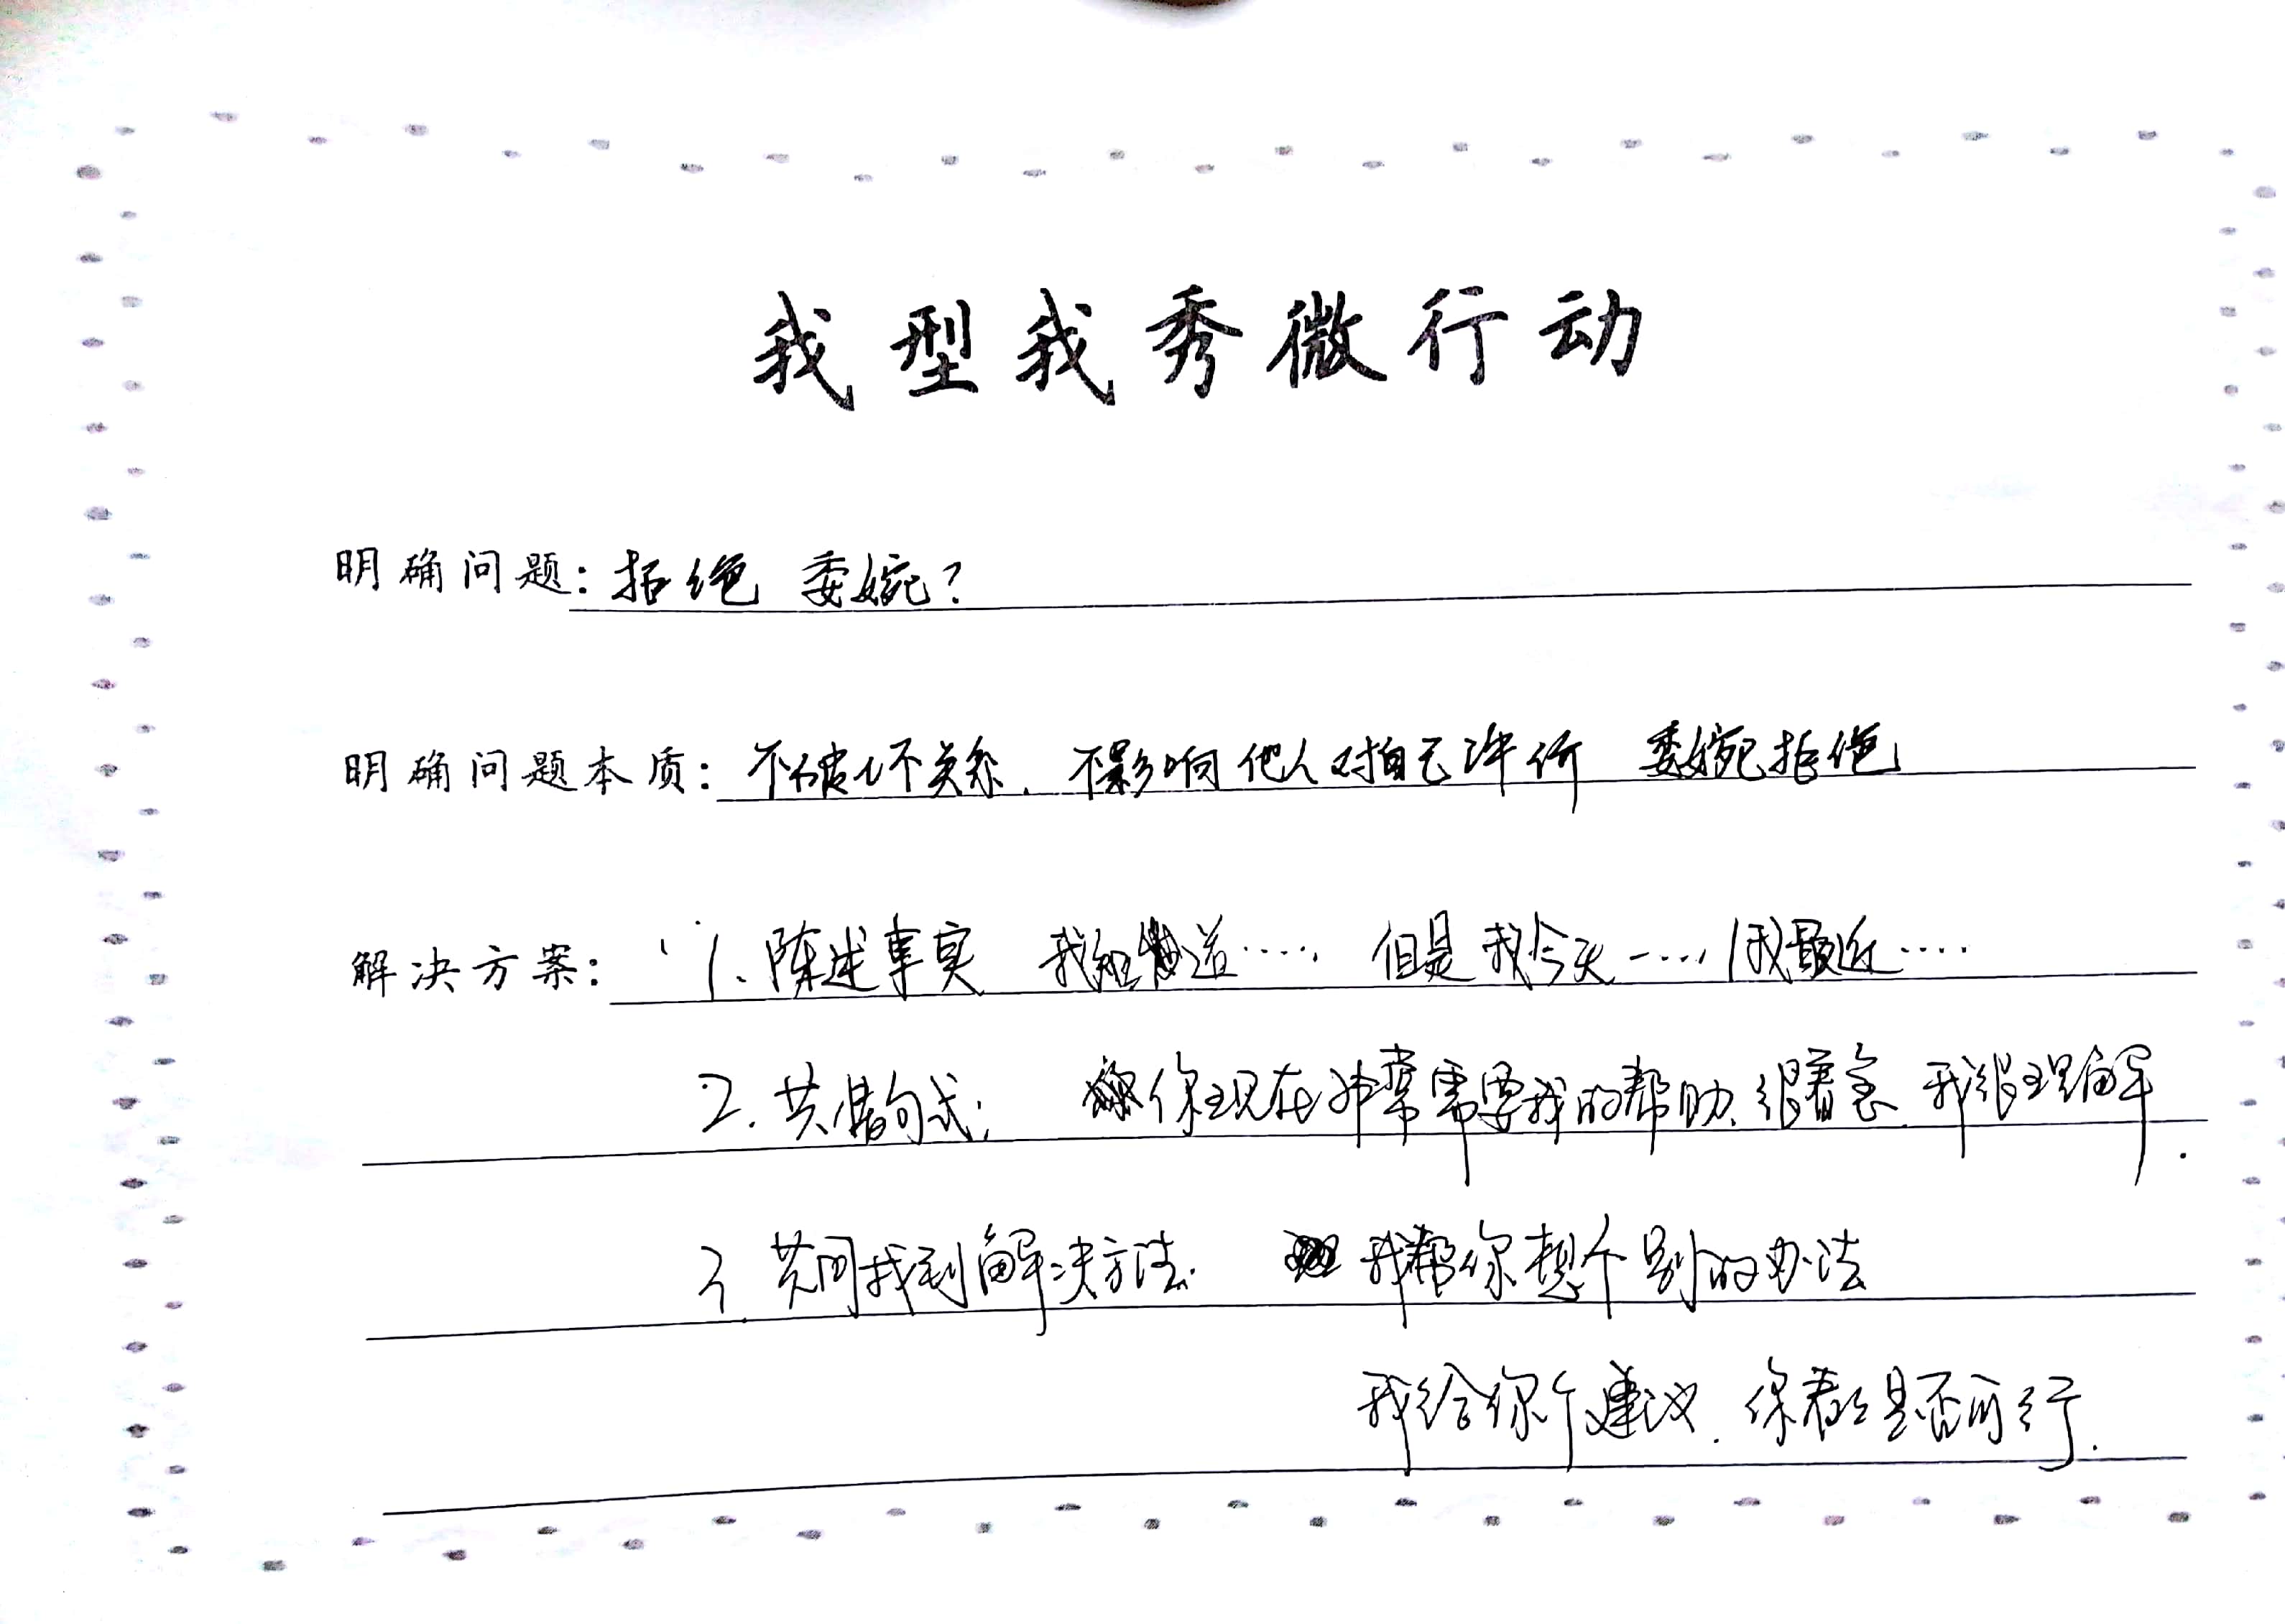 我型我秀微行动
明确问题：拒绝 委婉？
明确问题本质：不破坏关系、不影响他人对自己评价 委婉拒绝
解决方案：1、陈述事实 我知道…… 但是我今天…… / 我最近……
2. 共情句式： 你现在非常需要我的帮助、很着急、我很理解.
3. 共同找到解决方法. 我帮你想个别的办法
我给你个建议. 你看看是否可行.